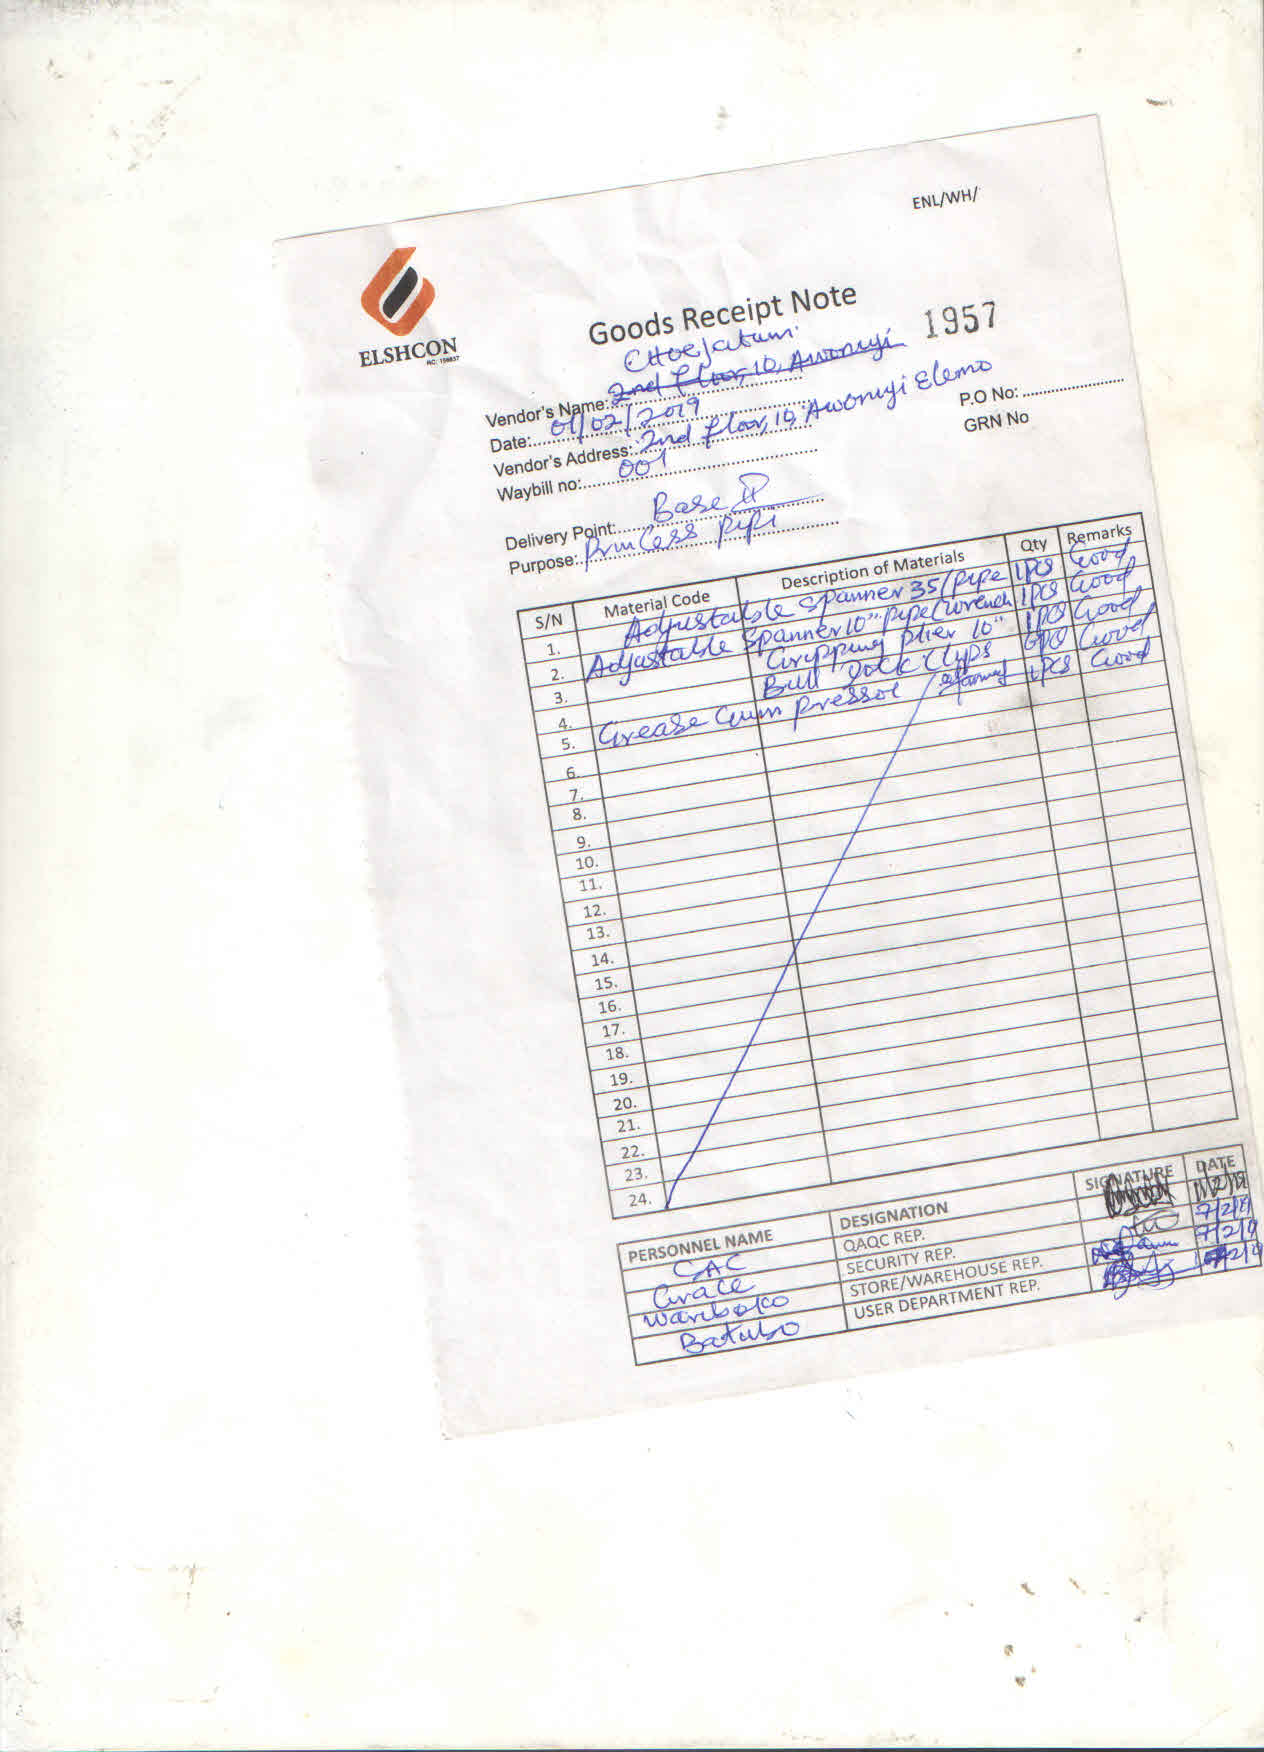 ENL/WH/
ELSHCON
RC: 159857
Goods Receipt Note
1957
Vendor's Name: 2nd floor, 10, Awonuyi
Date: 01/02/2019
Vendor's Address: 2nd floor, 10, Awonuyi Elemo
P.O No:
Waybill no: 001
GRN No
Delivery Point: Base II
Purpose: Princess Pipi
S/N Material Code Description of Materials Qty Remarks
1. Adjustable Spanner 35/Pipe 1PCS Good
2. Adjustable Spanner 10" Pipe/Wrench 1PCS Good
3. Gripping Plier 10" 1PCS Good
4. Bull Dock Clips 6PCS Good
5. Grease Gun Pressol Good
6.
7.
8.
9.
10.
11.
12.
13.
14.
15.
16.
17.
18.
19.
20.
21.
22.
23.
24.
PERSONNEL NAME DESIGNATION SIGNATURE DATE
CAC QAQC REP.
Grace SECURITY REP. 7/2/19
Wariboko STORE/WAREHOUSE REP. 7/2/19
Batubo USER DEPARTMENT REP.